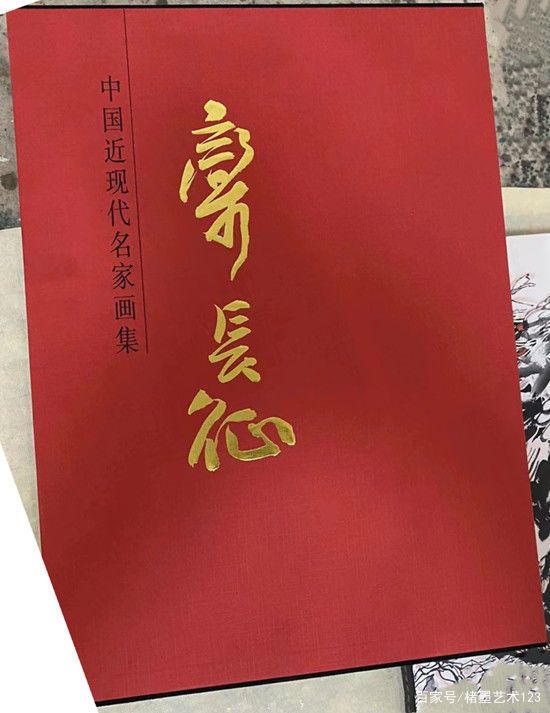 中国近现代名家画集
欒長征
百家号/楮墨艺术123